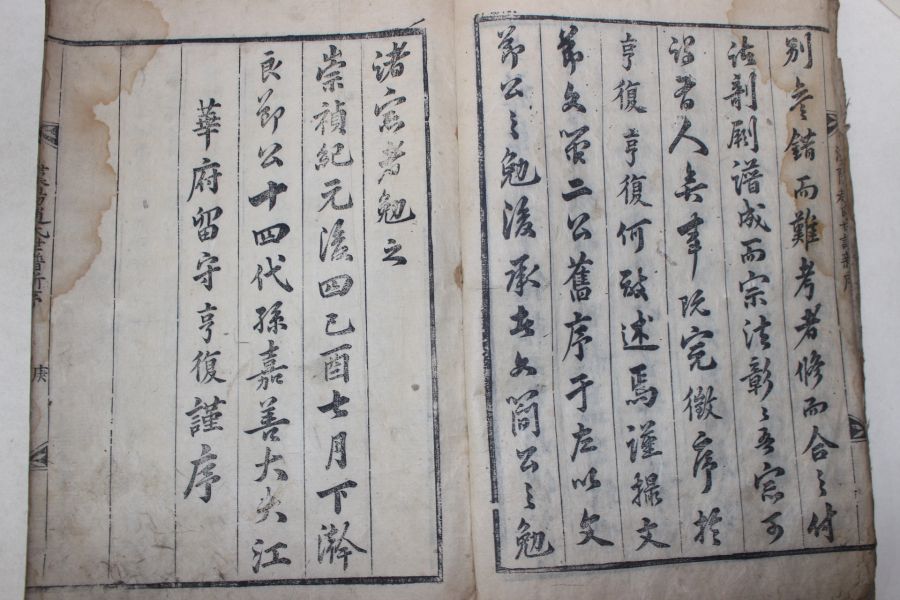 別彙錯而難考者修而合之付
諸剞劂譜成而宗法彰之吾宗可
謂有人矣事既完徵序於
亨復亨復何敢述焉謹撮文
二公舊序于左以文
節公之勉後承文簡公之勉
諸宗者勉之
崇禎紀元後四己酉七月下澣
良節公十四代孫嘉善大夫江
華府留守亨復謹序